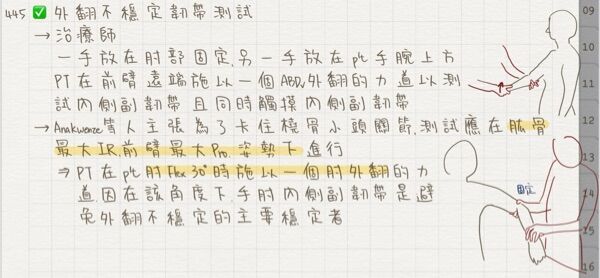 445 ✅ 外翻不穩定韌帶測試
→ 治療師
一手放在肘部固定,另一手放在pt手腕上方
PT在前臂遠端施以一個ABD,外翻的力道以測
試內側副韌帶且同時觸摸內側副韌帶
→ Anakwenze等人主張為了卡住橈骨小頭關節,測試應在肱骨
最大IR,前臂最大Pro.姿勢下進行
⇒ PT在pt肘Flex 30°時施以一個肘外翻的力
道,因在該角度下,手肘內側副韌帶是避
免外翻不穩定的主要穩定者
固定
09
10
11
12
13
14
15
16